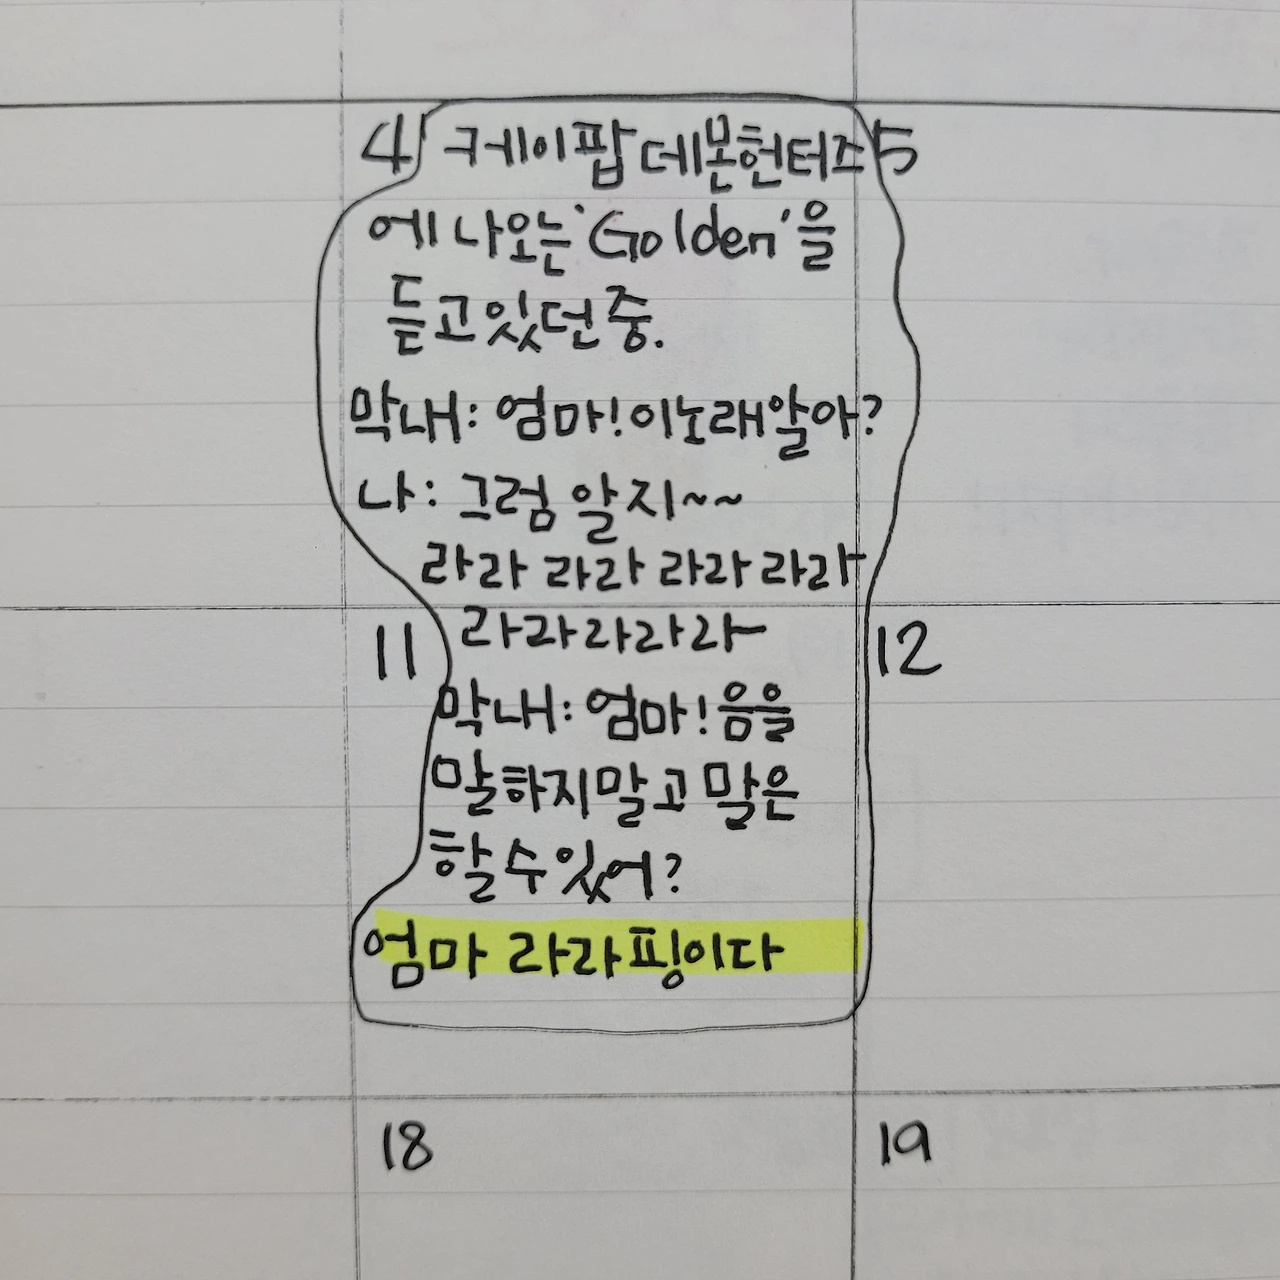 4 케이팝 데몬헌터즈 5
에 나오는 'Golden'을
듣고있던중.
막내: 엄마! 이노래알아?
나: 그럼 알지~~
라라 라라 라라 라라
11 라라라라라 12
막내: 엄마! 음을
말하지말고 말은
할수있어?
엄마 라라핑이다
18 19